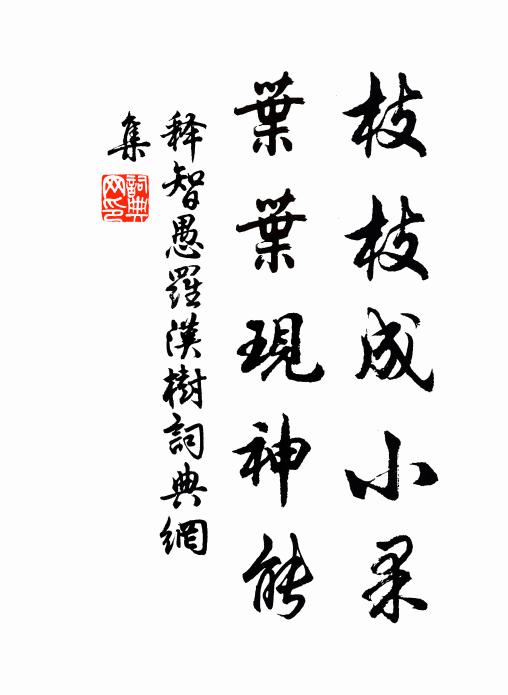 枝枝成小果
葉葉現神能
释智愚羅漢樹詞典網
集
詞典
网印